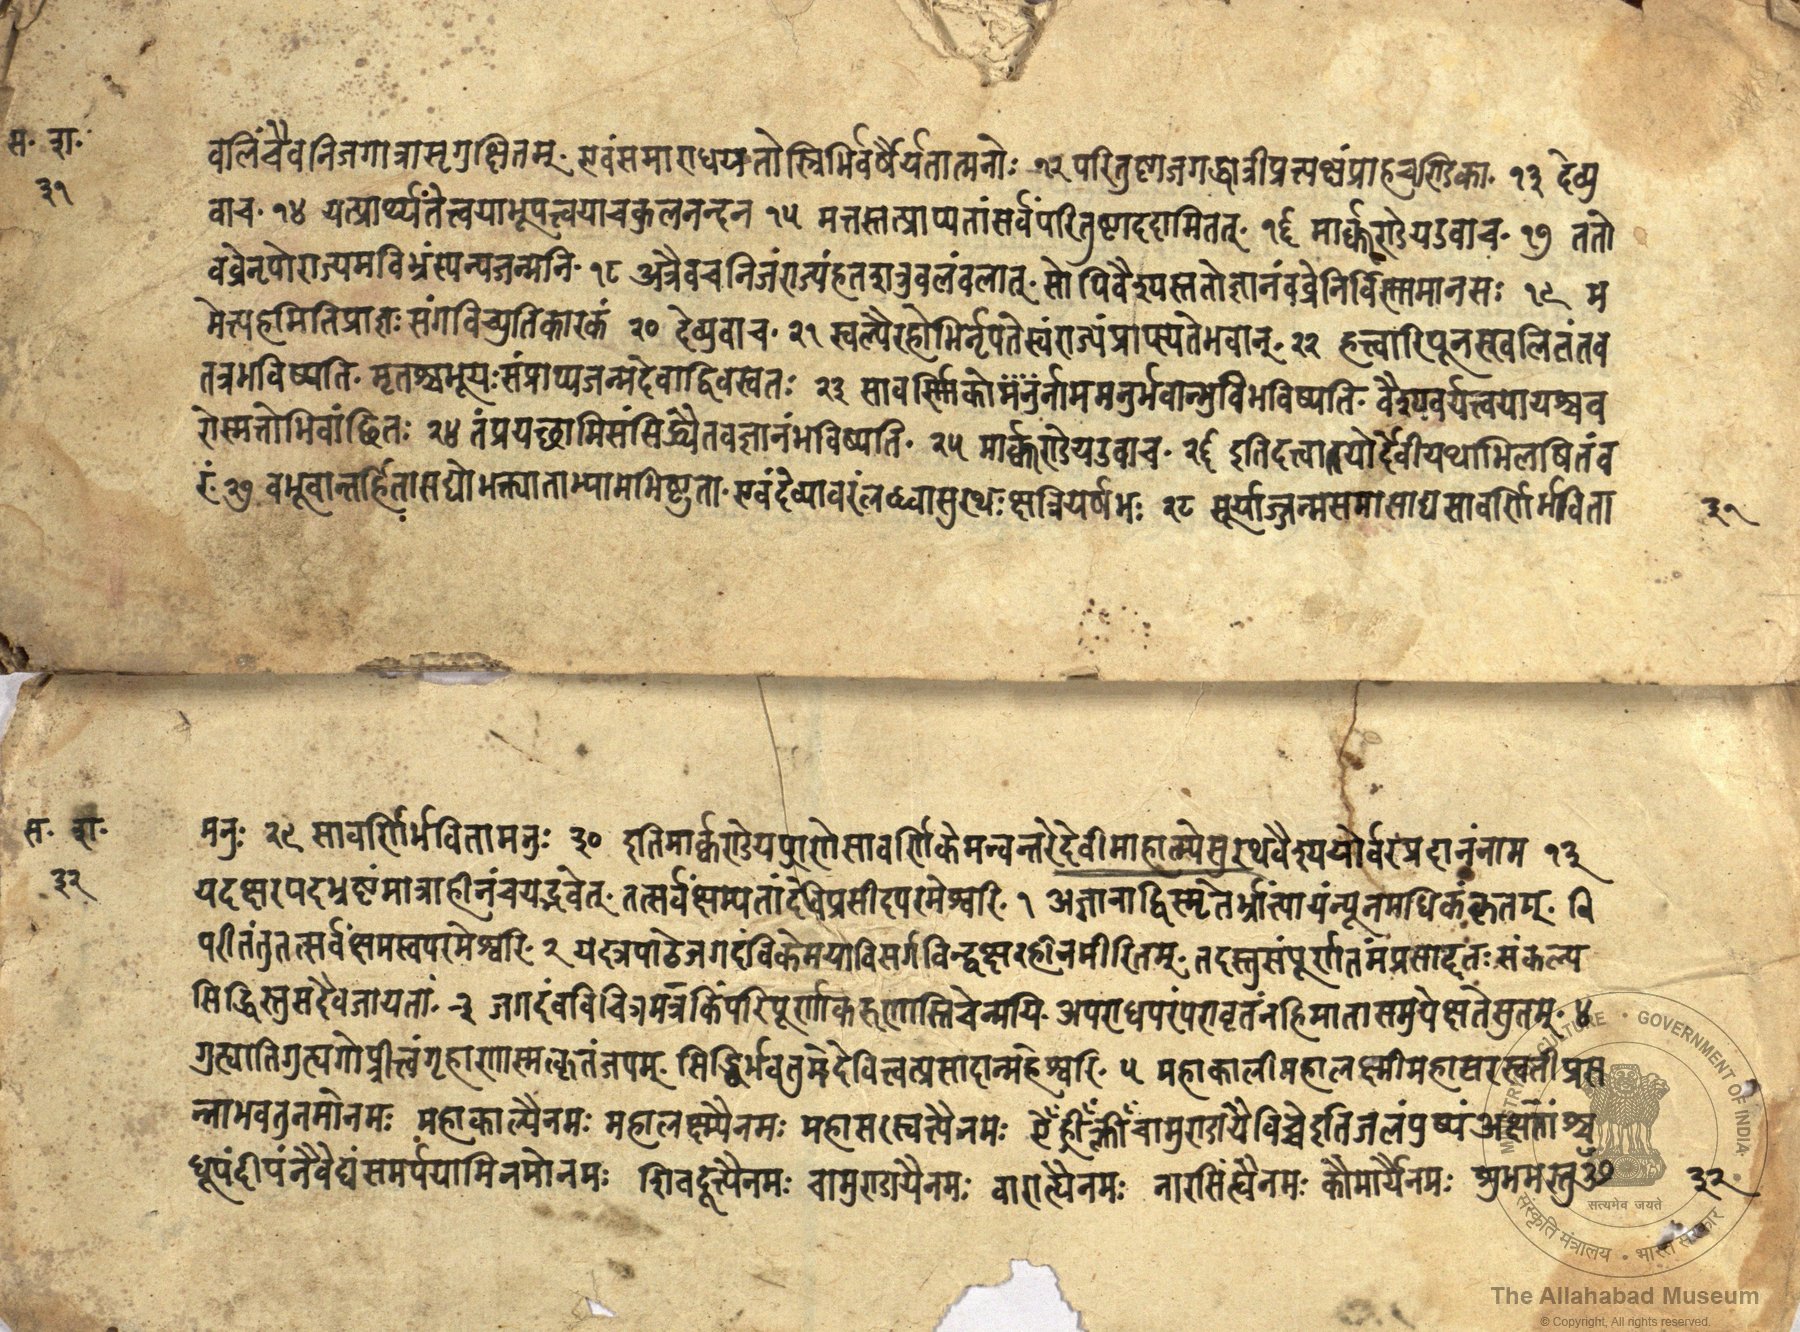 स॰ शा॰
३१
वलिंचैवनिजगात्रासृगुक्षितम्॰ एवंसमाराधयतोस्त्रिभिर्वर्षैर्यतात्मनोः १२ परितुष्टाजगद्धात्रीप्रत्यक्षंप्राहचण्डिका॰ १३ देव्यु
वाच॰ १४ यत्प्रार्थ्यतेत्वयाभूपत्वयाचकुलनन्दन १५ मत्तस्तत्प्राप्यतांसर्वंपरितुष्टाददामितत्॰ १६ मार्कण्डेयउवाच॰ १७ ततो
वव्रेनृपोराज्यमविभ्रंस्यन्यजन्मनि॰ १८ अत्रैवचनिजंराज्यंहतशत्रुवलंवलात्॰ सोपिवैश्यस्ततोज्ञानंवव्रेनिर्विस्ममानसः १९ म
मेत्यहमितिप्राज्ञःसंगविच्युतिकारकं २० देव्युवाच॰ २१ स्वल्पैरहोभिर्नृपतेस्वंराज्यंप्राप्स्यतेभवान्॰ २२ हत्त्वारिपूनस्खलितंतव
तत्रभविष्यति॰ मृतश्चभूयःसंप्राप्यजन्मदेवाद्विवस्वतः २३ सावर्स्मिकोमनुर्नाममनुर्भवान्भुविभविष्यति॰ वैश्यवर्यत्वयायश्चव
रोस्मत्तोभिवांछितः २४ तंप्रयछामिसंसिद्ध्यैतवज्ञानंभविष्यति॰ २५ मार्कण्डेयउवाच॰ २६ इतिदत्त्वातयोर्देवीयथाभिलषितंव
रं २७ वभूवान्तर्हितासद्योभक्त्याताभ्यामभिष्टुता॰ एवंदेव्यावरंलब्ध्वासुरथःक्षत्रियर्षभः २८ सूर्याज्जन्मसमासाद्यसावर्णिर्भविता
३१
स॰ शा॰
३२
मनुः २९ सावर्णिर्भवितामनुः ३० इतिमार्कण्डेयपुराणेसावर्णिकेमन्वन्तरेदेवीमाहात्म्येसुरथवैश्ययोर्वरप्रदानंनाम १३
यदक्षरपदभ्रष्टंमात्राहीनंचयद्भवेत्॰ तत्सर्वंक्षम्यतांदेविप्रसीदपरमेश्वरि॰ १ अज्ञानाद्विस्मृतेर्भ्रांत्यायंन्यूनमधिकंकृतम्॰ वि
परीतंतुतत्सर्वंक्षमस्वपरमेश्वरि॰ २ यदत्रपाठेजगदंविकेमयाविसर्गविन्द्वक्षरहीनमीरितम्॰ तदस्तुसंपूर्णतमंप्रसादतःसंकल्प
सिद्धिस्तुसदैवजायतां॰ ३ जगदंवविचित्रमत्रकिंपरिपूर्णाकरुणास्तिचेन्मयि॰ अपराधपरंपरावृतंनहिमातासमुपेक्षतेसुतम्॰ ४
गुह्यातिगुह्यगोप्त्रीत्वंगृहाणास्मत्कृतंजपम्॰ सिद्धिर्भवतुमेदेवित्वत्प्रसादान्महेश्वरि॰ ५ महाकालीमहालक्ष्मीमहासरस्वतीप्रस
न्नाभवतनमोनमः महाकाल्यैनमः महालक्ष्म्यैनमः महासरस्वत्यैनमः ऐंह्रींक्लींचामुण्डायैविच्चेइतिजलंपुष्पंअक्षतांश्च
धूपंदीपंनैवेद्यंसमर्पयामिनमोनमः शिवदूत्यैनमः चामुण्डायैनमः वाराह्यैनमः नारसिंह्यैनमः कौमार्यैनमः शुभमस्तुॐ
३२
MINISTRY OF CULTURE • GOVERNMENT OF INDIA
सत्यमेव जयते
संस्कृति मंत्रालय • भारत सरकार
The Allahabad Museum
© Copyright, All rights reserved.